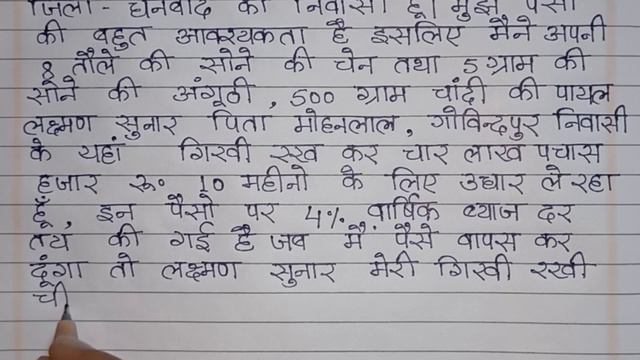 जिला - धनबाद का निवासी हूँ। मुझे पैसों
की बहुत आवश्यकता है इसलिए मैंने अपनी
8 तौले की सोने की चेन तथा 5 ग्राम की
सोने की अंगूठी, 500 ग्राम चांदी की पायल
लक्ष्मण सुनार पिता मोहनलाल, गोविन्दपुर निवासी
के यहां गिरवी रख कर चार लाख पचास
हजार रू० 10 महीनो के लिए उधार ले रहा
हूँ, इन पैसो पर 4% वार्षिक ब्याज दर
तय की गई है जब मैं पैसे वापस कर
दूंगा तो लक्ष्मण सुनार मेरी गिरवी रखी
ची